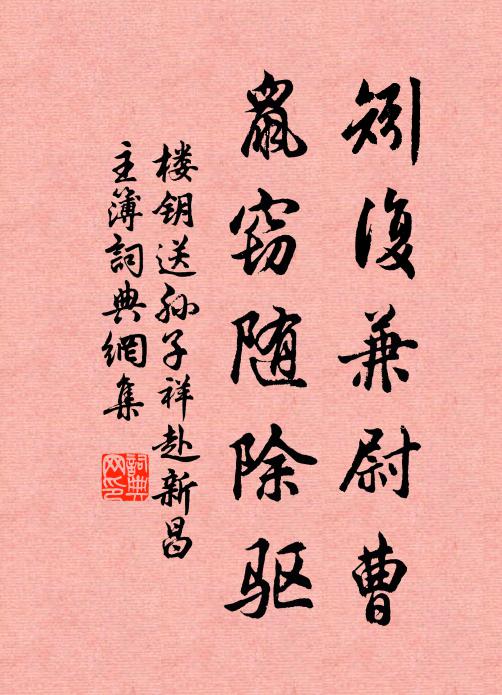 矧復兼尉曹
鼠窃随除驱
楼钥送孙子祥赴新昌
主簿詞典網集
詞典网印